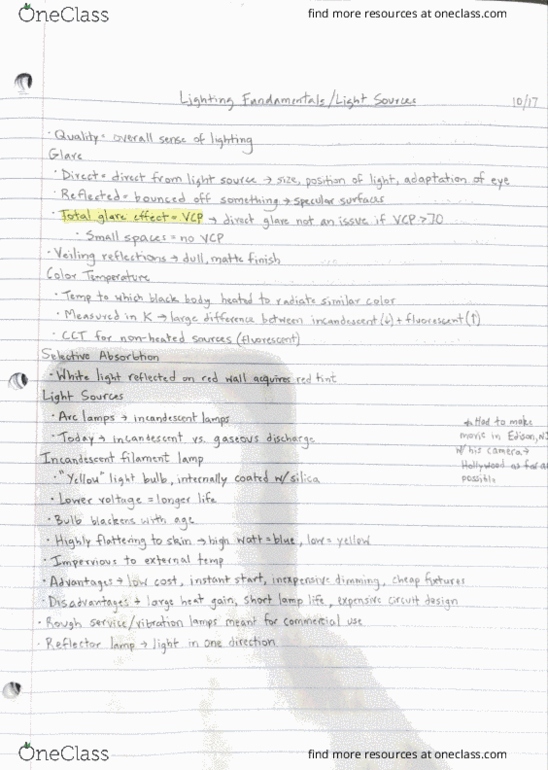 OneClass
find more resources at oneclass.com
Lighting Fundamentals/Light Sources 10/17
· Quality = overall sense of lighting
Glare
· Direct = direct from light source → size, position of light, adaptation of eye
· Reflected = bounced off something → specular surfaces
· Total glare effect = VCP → direct glare not an issue if VCP > 70
· Small spaces = no VCP
· Veiling reflections → dull, matte finish
Color Temperature
· Temp to which black body heated to radiate similar color
· Measured in K → large difference between incandescent (↓) + fluorescent (↑)
· CCT for non-heated sources (fluorescent)
Selective Absorbtion
· White light reflected on red wall acquires red tint
Light Sources
· Arc lamps → incandescent lamps
· Today → incandescent vs. gaseous discharge
* Had to make
movie in Edison, NJ
w/ his camera →
Hollywood as far a
possible
Incandescent filament lamp
· "Yellow" light bulb, internally coated w/ silica
· Lower voltage = longer life
· Bulb blackens with age
· Highly flattering to skin → high watt = blue, low = yellow
· Impervious to external temp
· Advantages → low cost, instant start, inexpensive dimming, cheap fixtures
· Disadvantages → large heat gain, short lamp life, expensive circuit design
· Rough service/vibration lamps meant for commercial use
· Reflector lamp → light in one direction
OneClass
find more resources at oneclass.com